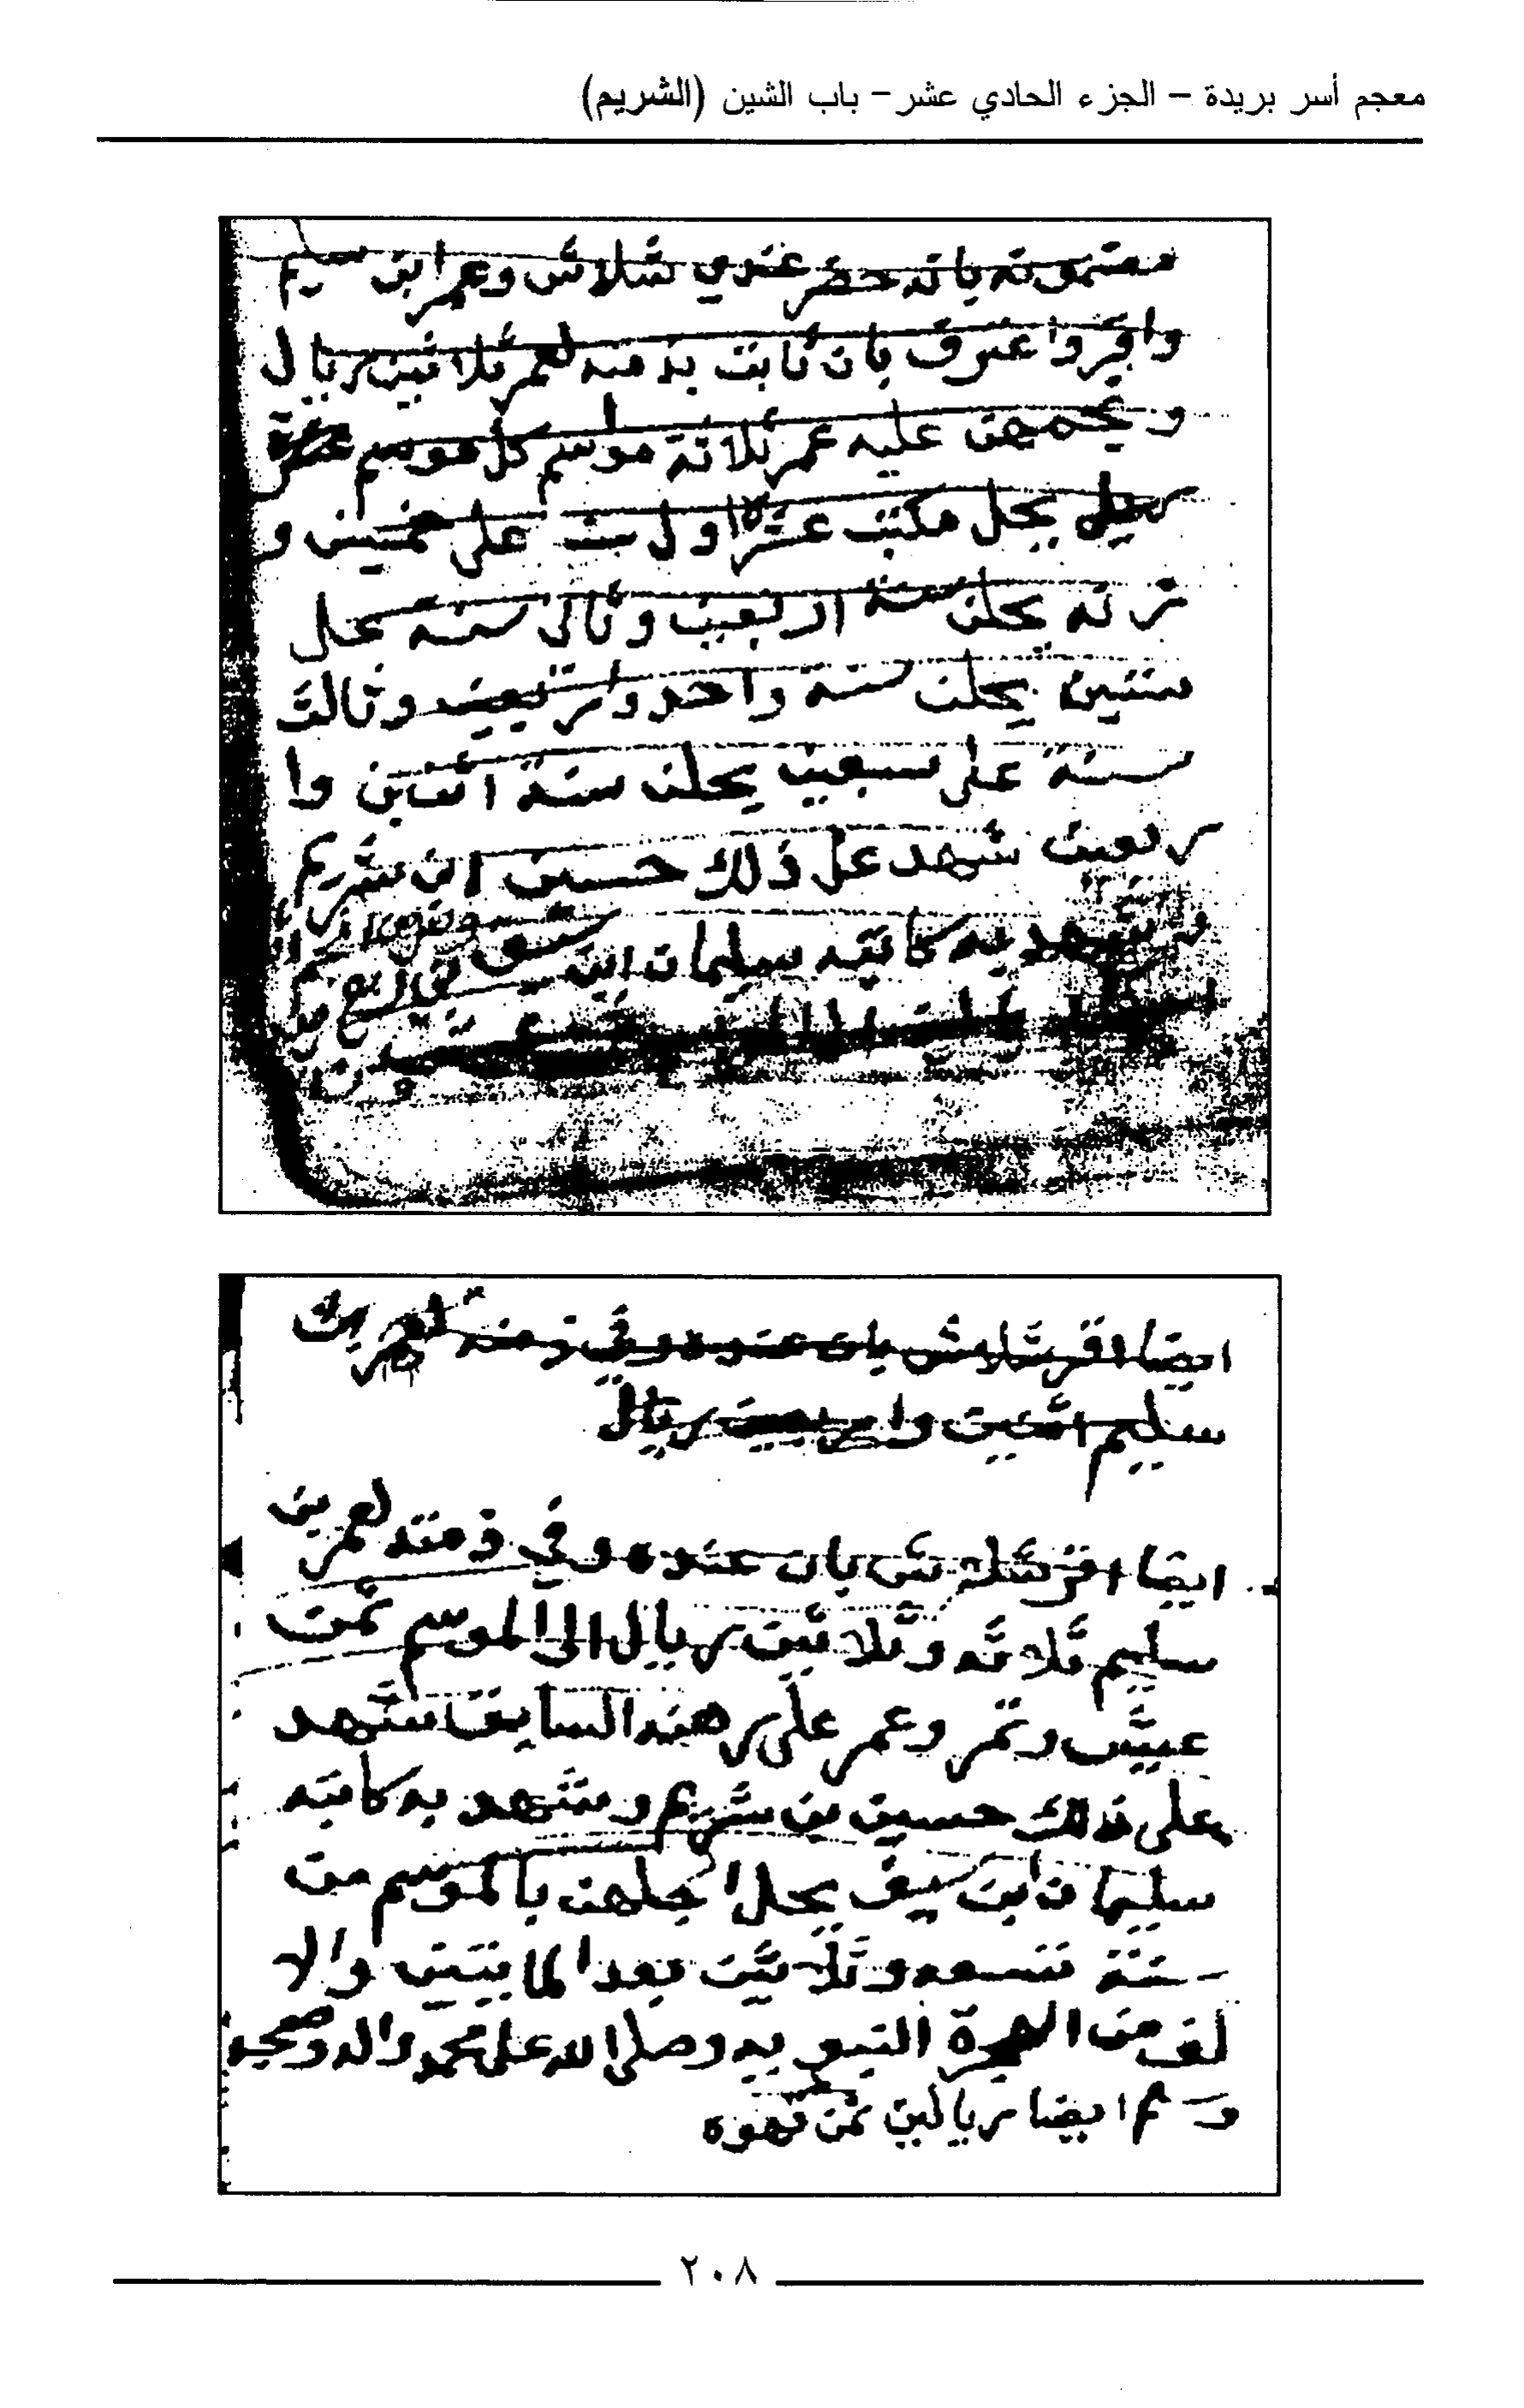 معجم أسر بريدة – الجزء الحادي عشر – باب الشين (الشريم)
مضمونه بانه حضر عندي شلاش وعمر ابن سليم
واقروا عترف بان ثابت بذمته لعمر ثلاثين ريال
عليه عمر ثلاثة مواسم كل موسم عشرة
يحل مكتب عشرة اول على خمسين و
يحلن سنة اربعين وثالى سنه يحل
ستين يحلن سنة واحد واربعين وثالث
سنة على سبعين يحلن سنة اثنين وا
ربعين شهد على ذلك حسين ابن شريم
وشهد به كاتبه سليمان ابن سيف
ايضا اقر شلاش بان عنده وفي ذمته لعمر بن
سليم اثنين واربعين ريال
ايضا اقر شلاش بان عنده وفي ذمته لعمر بن
سليم ثلاثه وثلاثين ريال الى الموسم ثمن
عيش وتمر وعمر على رهنه السابق شهد
على ذلك حسين بن شريم وشهد به كاتبه
سليمان ابن سيف يحل اجلهن بالموسم من
سنة تسعه وثلاثين بعد المايتين والا
لف من الهجرة النبويه وصلى الله على محمد واله وصحبه
وسلم ايضا ريالين ثمن قهوه
٢٠٨